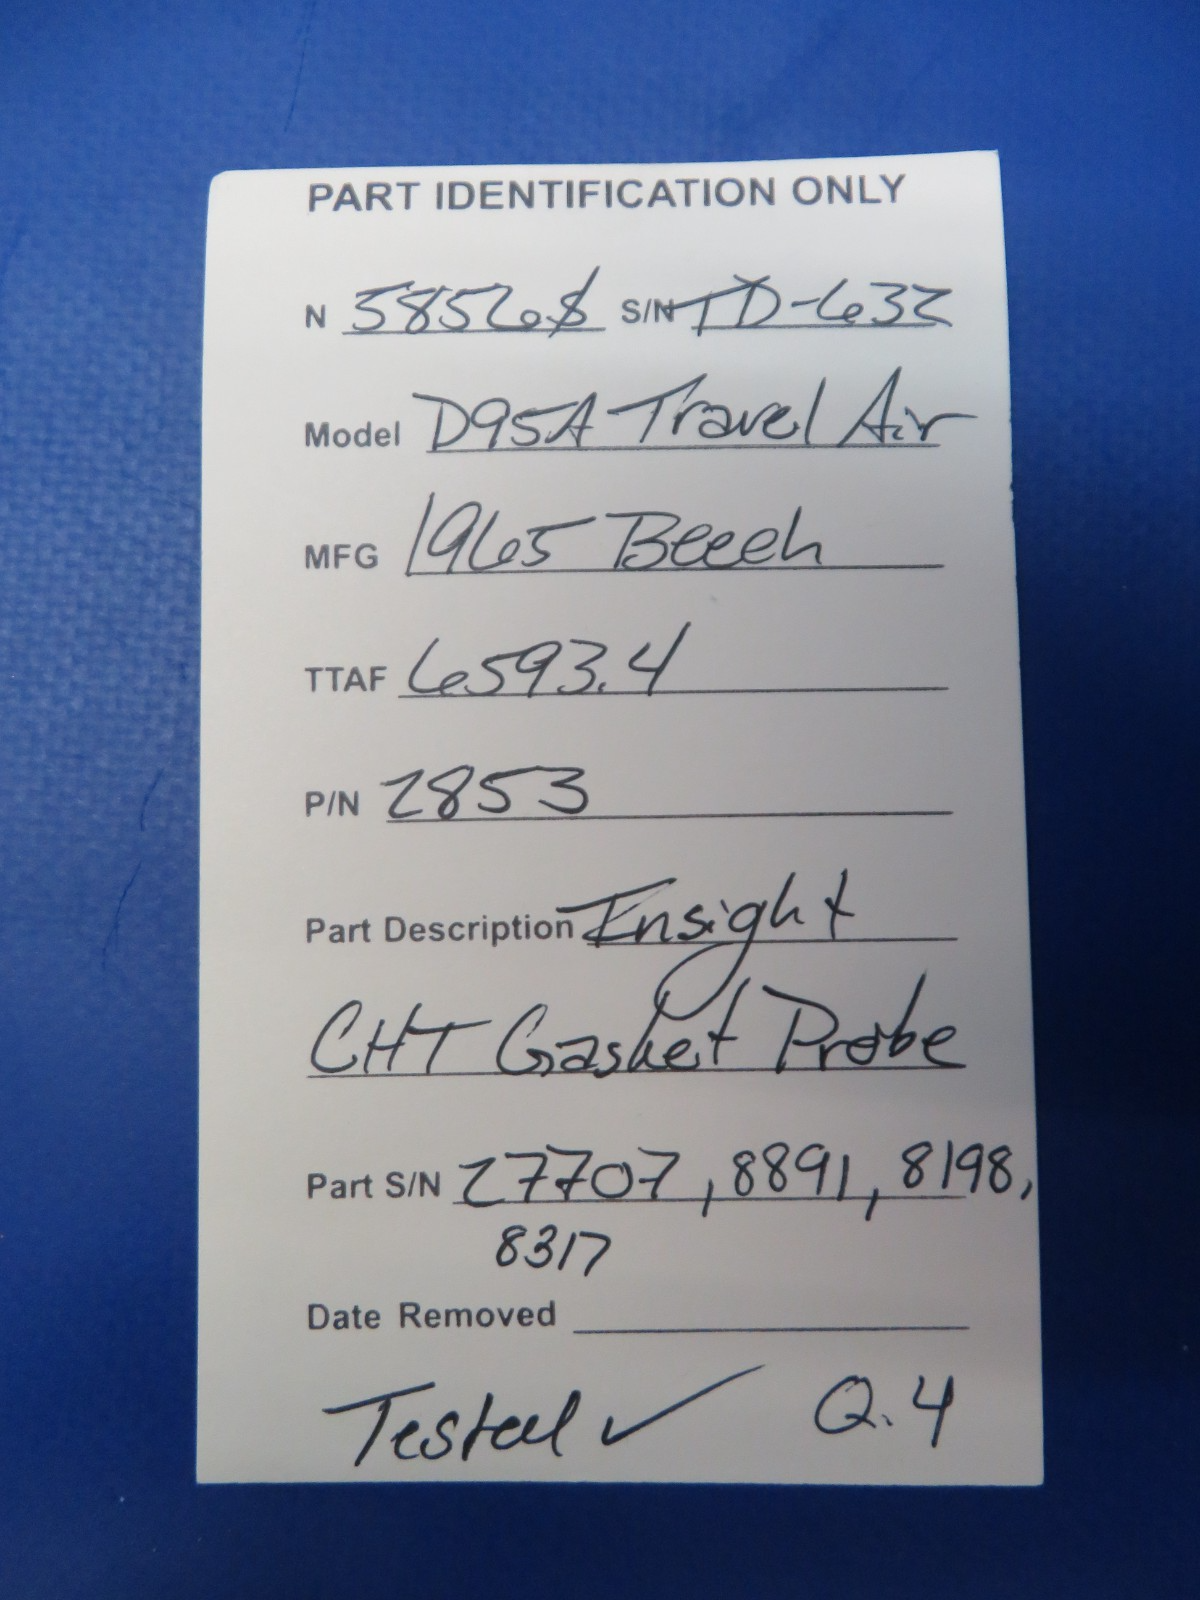 PART IDENTIFICATION ONLY
N 5856S S/N TD-632
Model D95A Travel Air
MFG 1965 Beech
TTAF 6593.4
P/N 2853
Part Description Insight
CHT Gasket Probe
Part S/N 27707, 8891, 8198,
8317
Date Removed
Tested ✓ Q.4